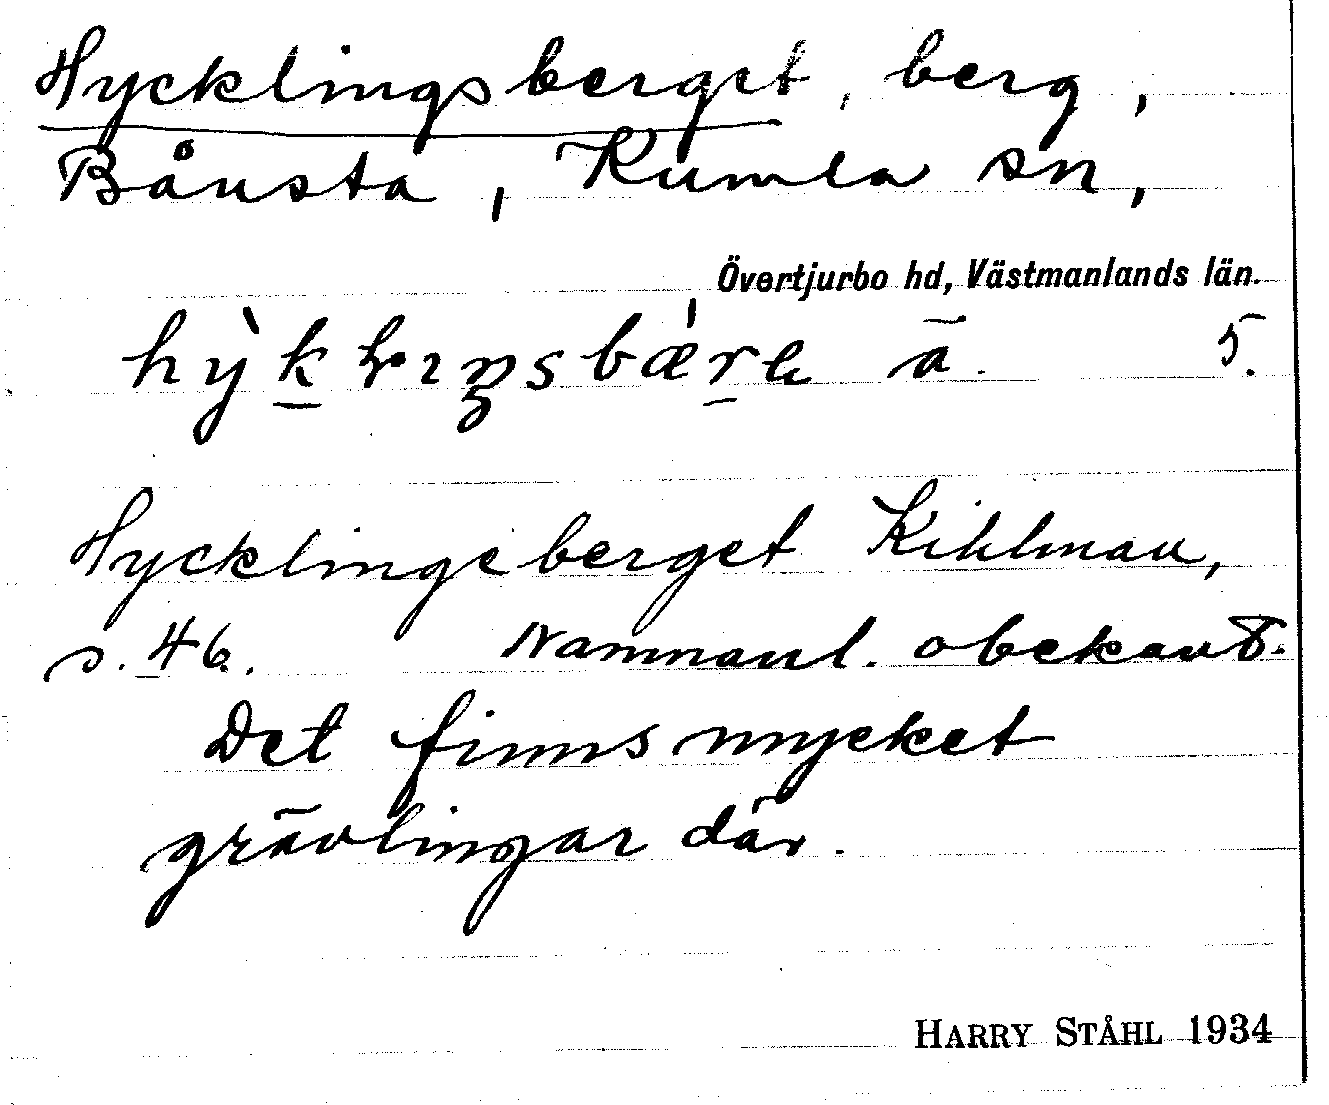 Hycklingsberget, berg,
Bånsta, Kumla sn,
Övertjurbo hd, Västmanlands län.
5.
Hycklingeberget Kihlman,
s. 46. Namnanl. obekant.
Det finns mycket
grävlingar där.
HARRY STÅHL 1934